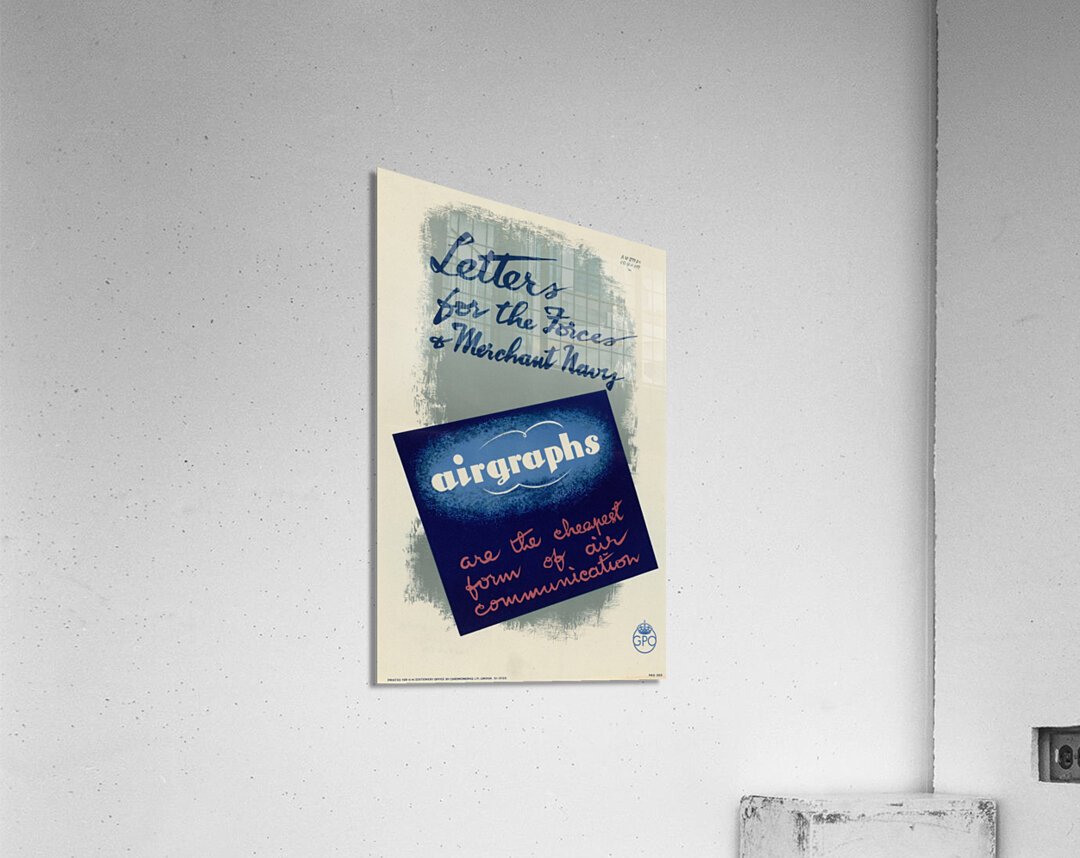 Letters
for the Forces
& Merchant Navy
airgraphs
are the cheapest
form of air
communication
GPO